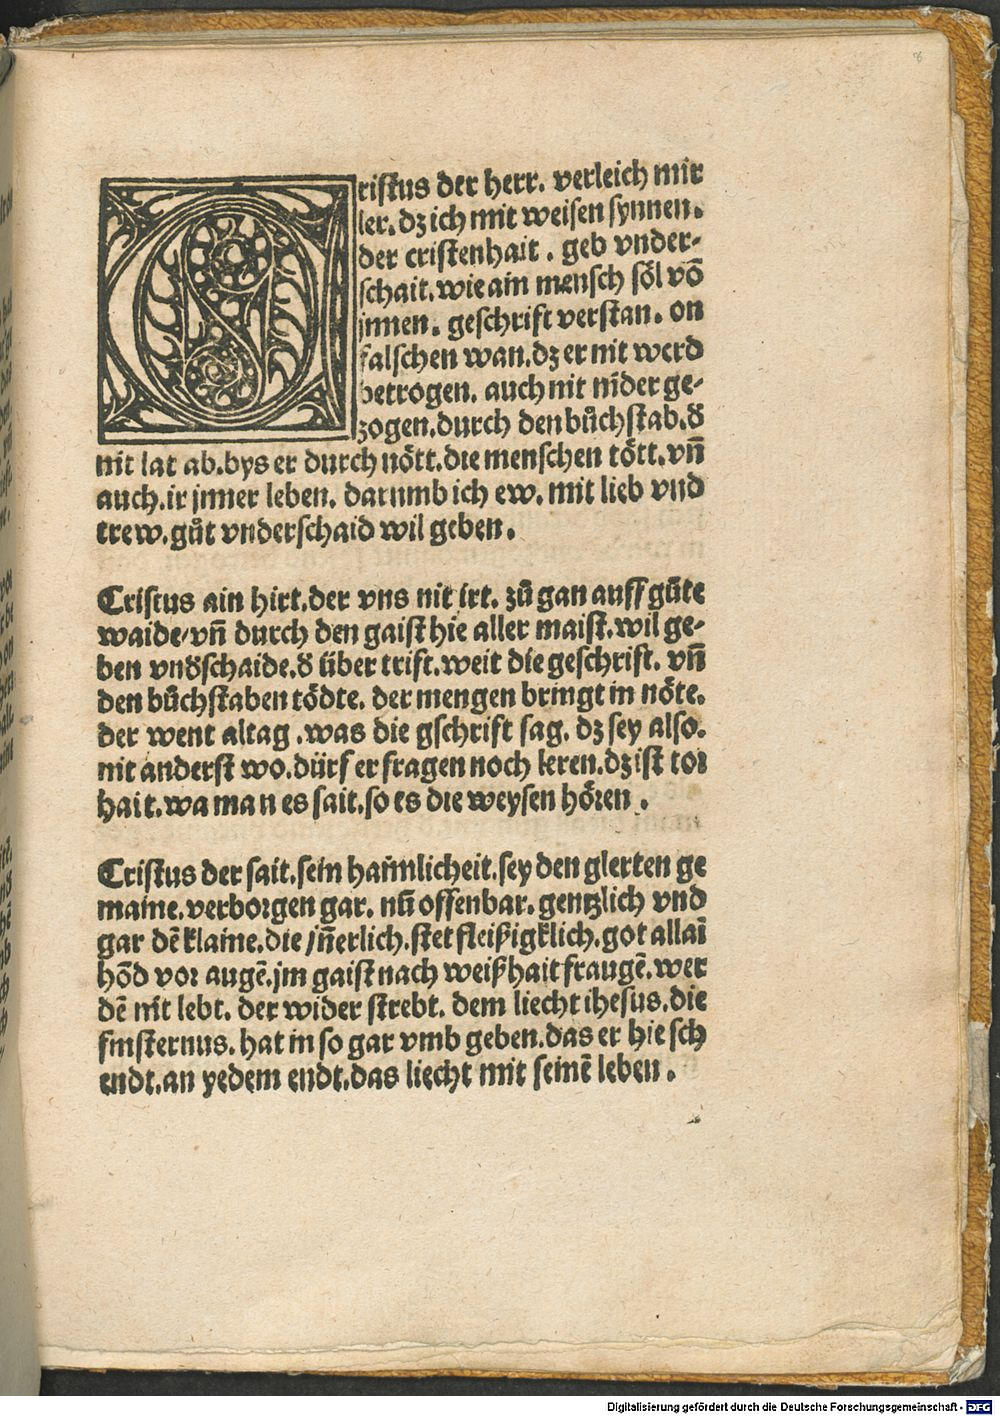 8
Cristus der herr. verleich mir
ler. dz ich mit weisen synnen.
der cristenhait. geb vnder-
schait. wie ain mensch sol võ
jnnen. geschrift verstan. on
falschen wan. dz er nit werd
betrogen. auch nit nider ge-
zogen. durch den bůchstab. ð
nit lat ab. bys er durch nött. die menschen tött. vn̄
auch. ir jnner leben. darumb ich ew. mit lieb vnd
trew. gůt vnderschaid wil geben.
Cristus ain hirt. der vns nit irt. zů gan auff gůte
waide/ vn̄ durch den gaist hie aller maist. wil ge-
ben vnðschaide. ð über trift. weit die geschrift. vn̄
den bůchstaben tödte. der mengen bringt in nöte.
der went altag. was die gschrift sag. dz sey also.
nit anderst wo. dürf er fragen noch leren. dz ist tor
hait. wa man es sait. so es die weysen hören.
Cristus der sait. sein haimlicheit. sey den glerten ge
maine. verborgen gar. nū offenbar. gentzlich vnd
gar dē klaine. die jn̄erlich. stet fleißigklich. got allaī
hōd vor augē. jm gaist nach weißhait fraugē. wer
dē nit lebt. der wider strebt. dem liecht ihesus. die
finsternus. hat in so gar vmb geben. das er hie sch
endt. an yedem endt. das liecht mit seinē leben.
Digitalisierung gefördert durch die Deutsche Forschungsgemeinschaft - DFG